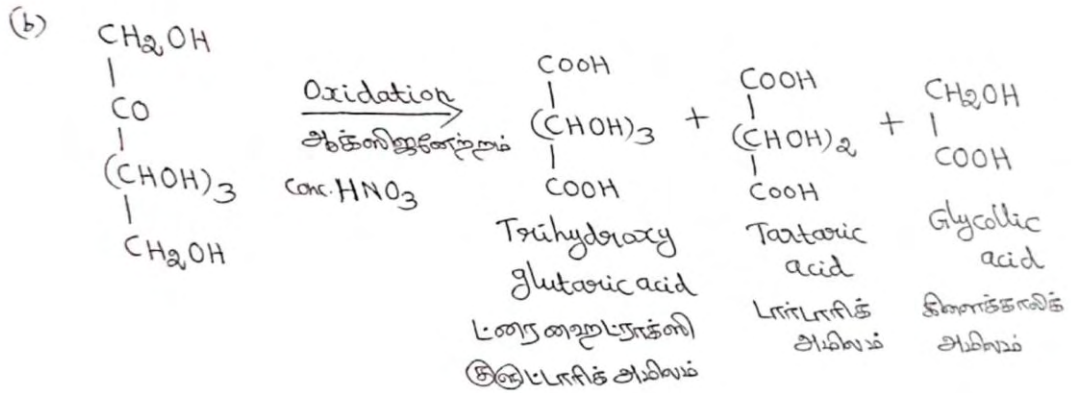 (b)
CH2OH
|
CO
|
(CHOH)3
|
CH2OH
Oxidation
ஆக்ஸிஜனேற்றம்
Conc. HNO3
COOH
|
(CHOH)3
|
COOH
Trihydroxy
glutaric acid
ட்ரைஹைட்ராக்ஸி
குளுட்டாரிக் அமிலம்
+
COOH
|
(CHOH)2
|
COOH
Tartaric
acid
டார்டாரிக்
அமிலம்
+
CH2OH
|
COOH
Glycollic
acid
கிளைக்காலிக்
அமிலம்